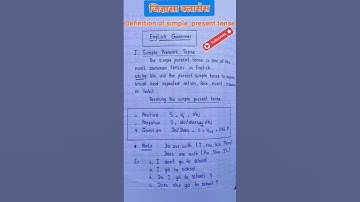 जिज्ञासा क्लासेस
Definition of simple present tense
English Grammar
I. Simple Present Tense
The simple present tense is one of the
most common tenses in English.
using: We use the present simple tense to express
usual and repeated action, fact, event,
or habit.
Forming the simple present tense.
Positive S + V1 + obj
Negative
Question Do/Does - S + V1 + obj ?
Note: Do use with (I, You, We, They)
Does use with (He, She, It)
Ex: I don't go to school.
I go to school.
Do I go to school ?
Does she go to school ?